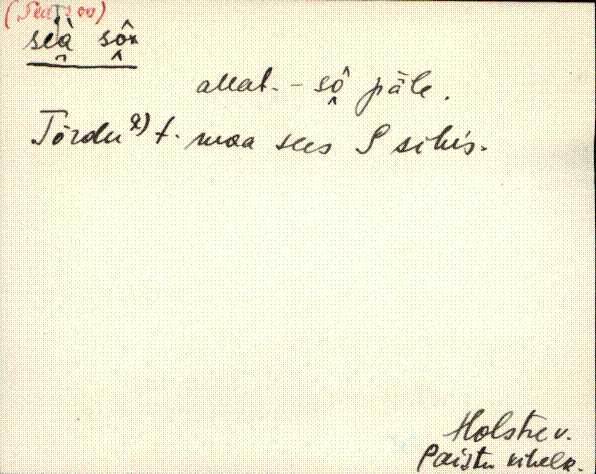 (Sea soo)
seà sôɒ
allat. - sô päle.
Tõrdu ²) t. maa sees S sihis.
Holstre v.
Paistu kihelk.